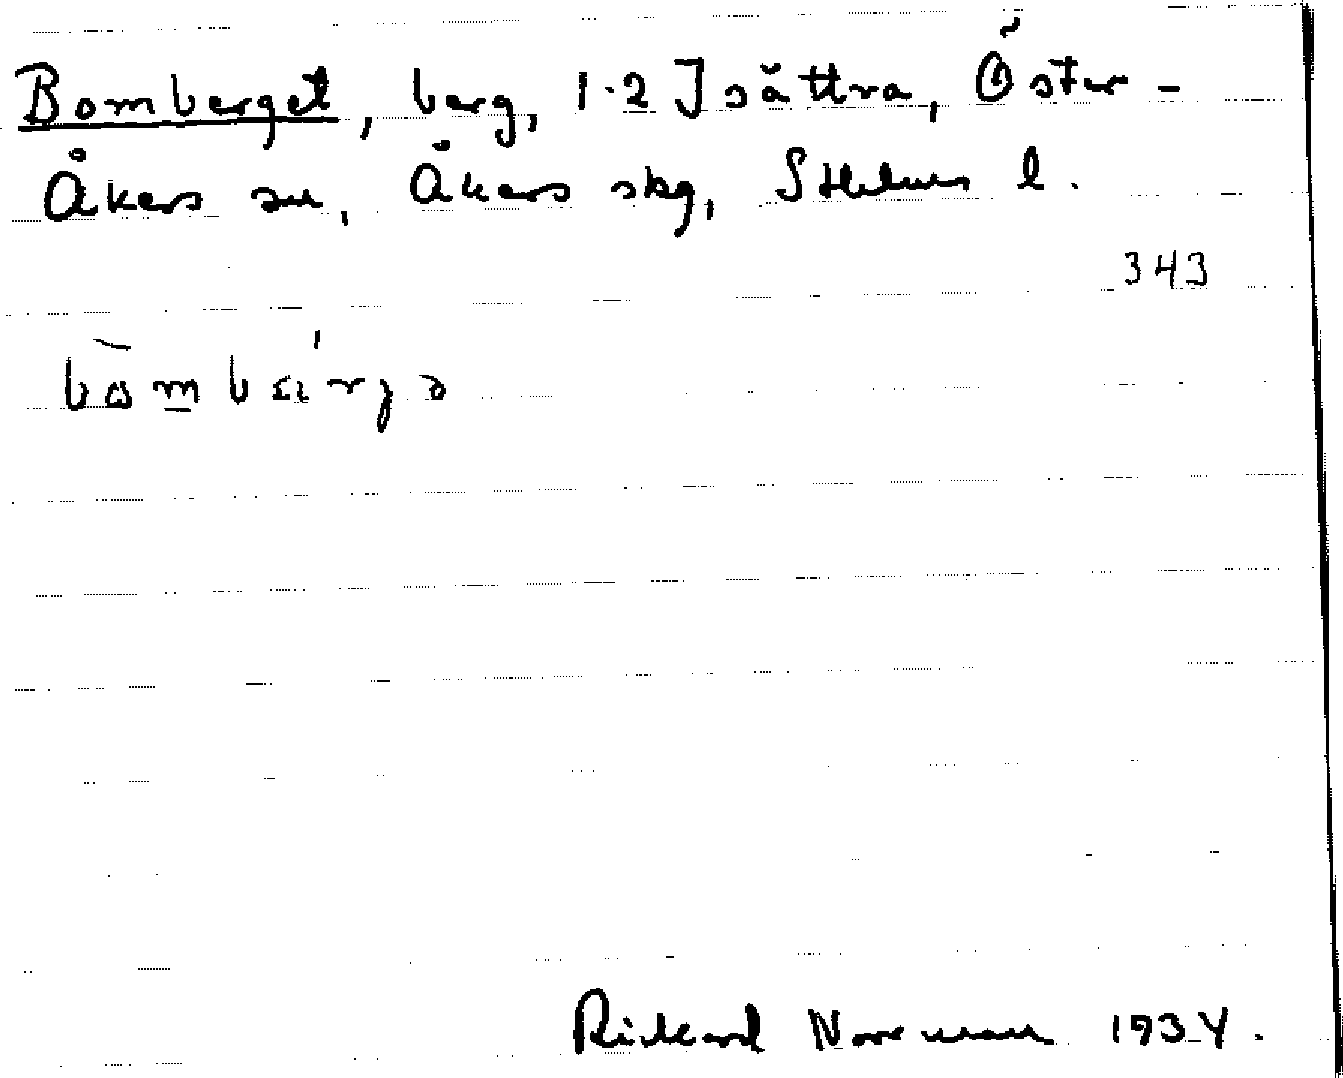 Bomberget, berg, 1-2 Isättra, Öster-
Åkers sn, Åkers skg, Sthlms l.
343
Rickard Norrman 1934.